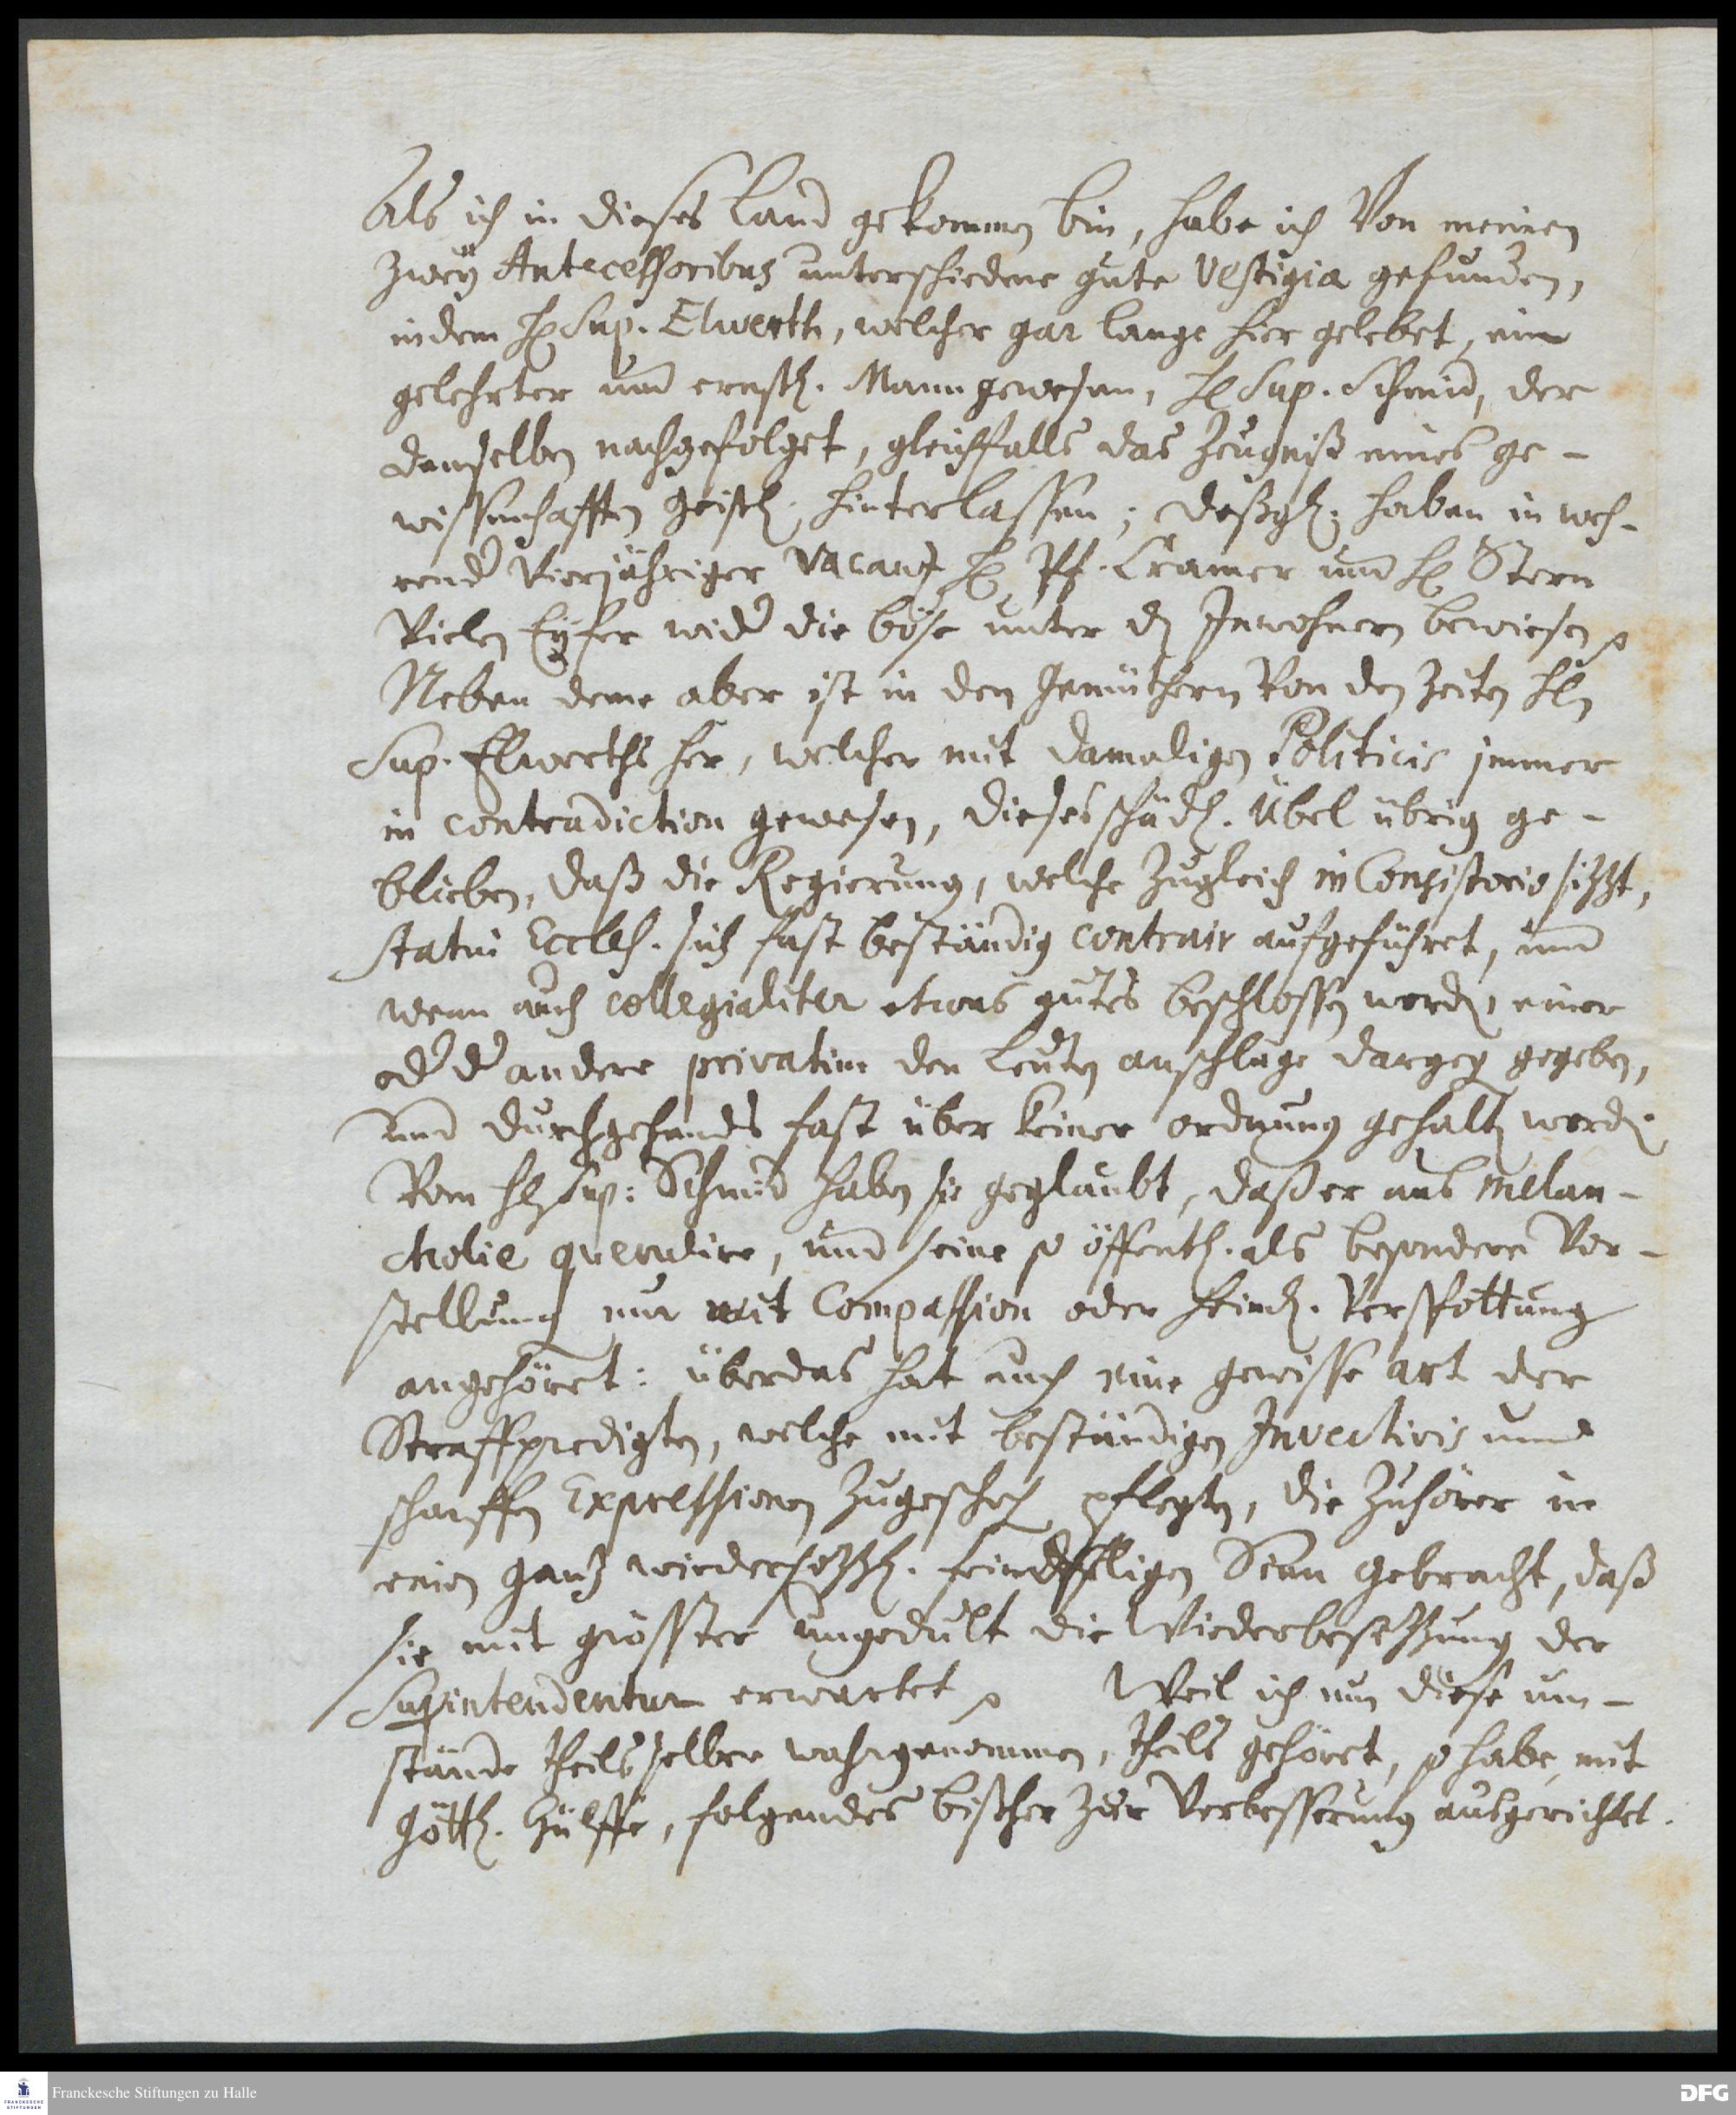 Als ich in dieses Land gekommen bin, habe ich Von meinen
zweÿ Antecessoribus unterschiedene gute Vestigia gefunden,
indem H Sup. Elwerth, welcher gar lange hier gelebet, ein
gelehrter und ernstl. Mann gewesen, H Sup. Schmid, der
demselben nachgefolget, gleichfalls das Zeugniß eines ge-
wissenhafften Geistl. hinterlassen; deßgl. haben in weh-
rend Vierjähriger Vacanz H Pf. Cramer und H Stern
Vielen Eÿfer wider die böse unter dn Inwohnern bewiesen
Neben deme aber ist in den Gemüthern Von den Zeiten Hn
Sup. Elwerths her, welcher mit damaligen Politicis immer
in contradiction gewesen, dieses schädl. Übel übrig ge-
blieben, daß die Regierung, welche Zugleich in Consistorio sitzt,
statui Eccles. sich fast beständig contrair aufgeführet, und
wenn auch collegialiter etwas gutes beschlossen word, einer
od d andere privatim den Leuten anschläge dargeg gegeben,
und durchgehends fast über keiner ordnung gehalt word.
Vom Hn Sup: Schmid haben sie geglaubt, daß er aus melan-
cholie querulire, und seine so öffentl. als besondere Vor-
stellung nur mit Compassion oder heiml. Verspottung
angehöret: überdas hat auch eine gewisse art der
Straffpredigten, welche mit beständigen Invectivis und
scharffen Expressionen zugescheh pflegten, die Zuhörer in
einen ganz widersetzl. feindseeligen Sinn gebracht, daß
sie mit grösster ungedult die Wiederbesetzung der
Supintendentur erwartet Weil ich nun diese um-
stände theils selber wahrgenommen, theils gehöret, so habe, mit
göttl. Hülffe, folgendes bißher zur Verbesserung ausgerichtet.
Franckesche Stiftungen zu Halle
FRANCKESCHE
STIFTUNGEN
DFG